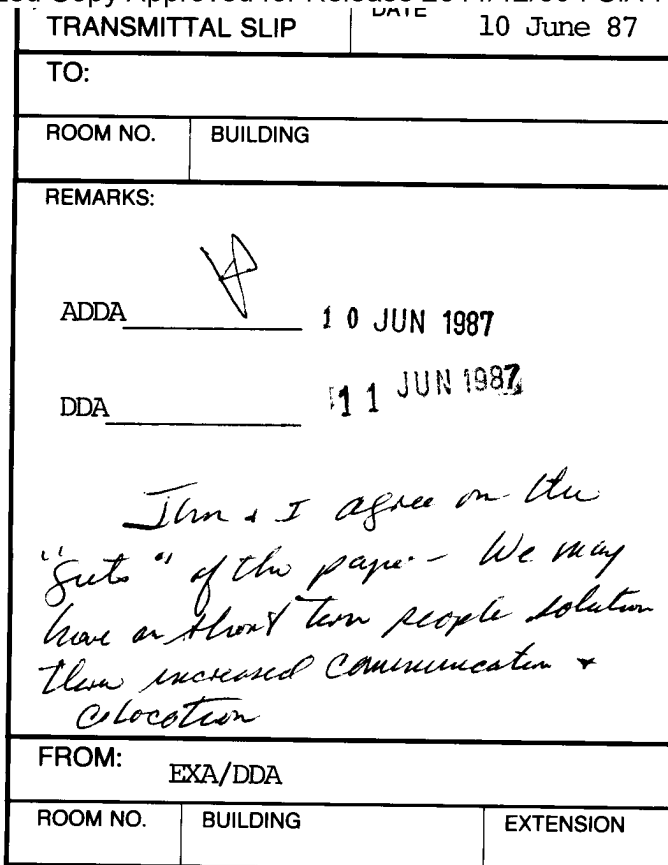 Copy Approved for Release
TRANSMITTAL SLIP DATE 10 June 87
TO:
ROOM NO. BUILDING
REMARKS:
ADDA 10 JUN 1987
DDA 11 JUN 1987
& I agree on the
"guts" of the paper - We may
have a short term people solution
increased communication &
colocation
FROM: EXA/DDA
ROOM NO. BUILDING EXTENSION